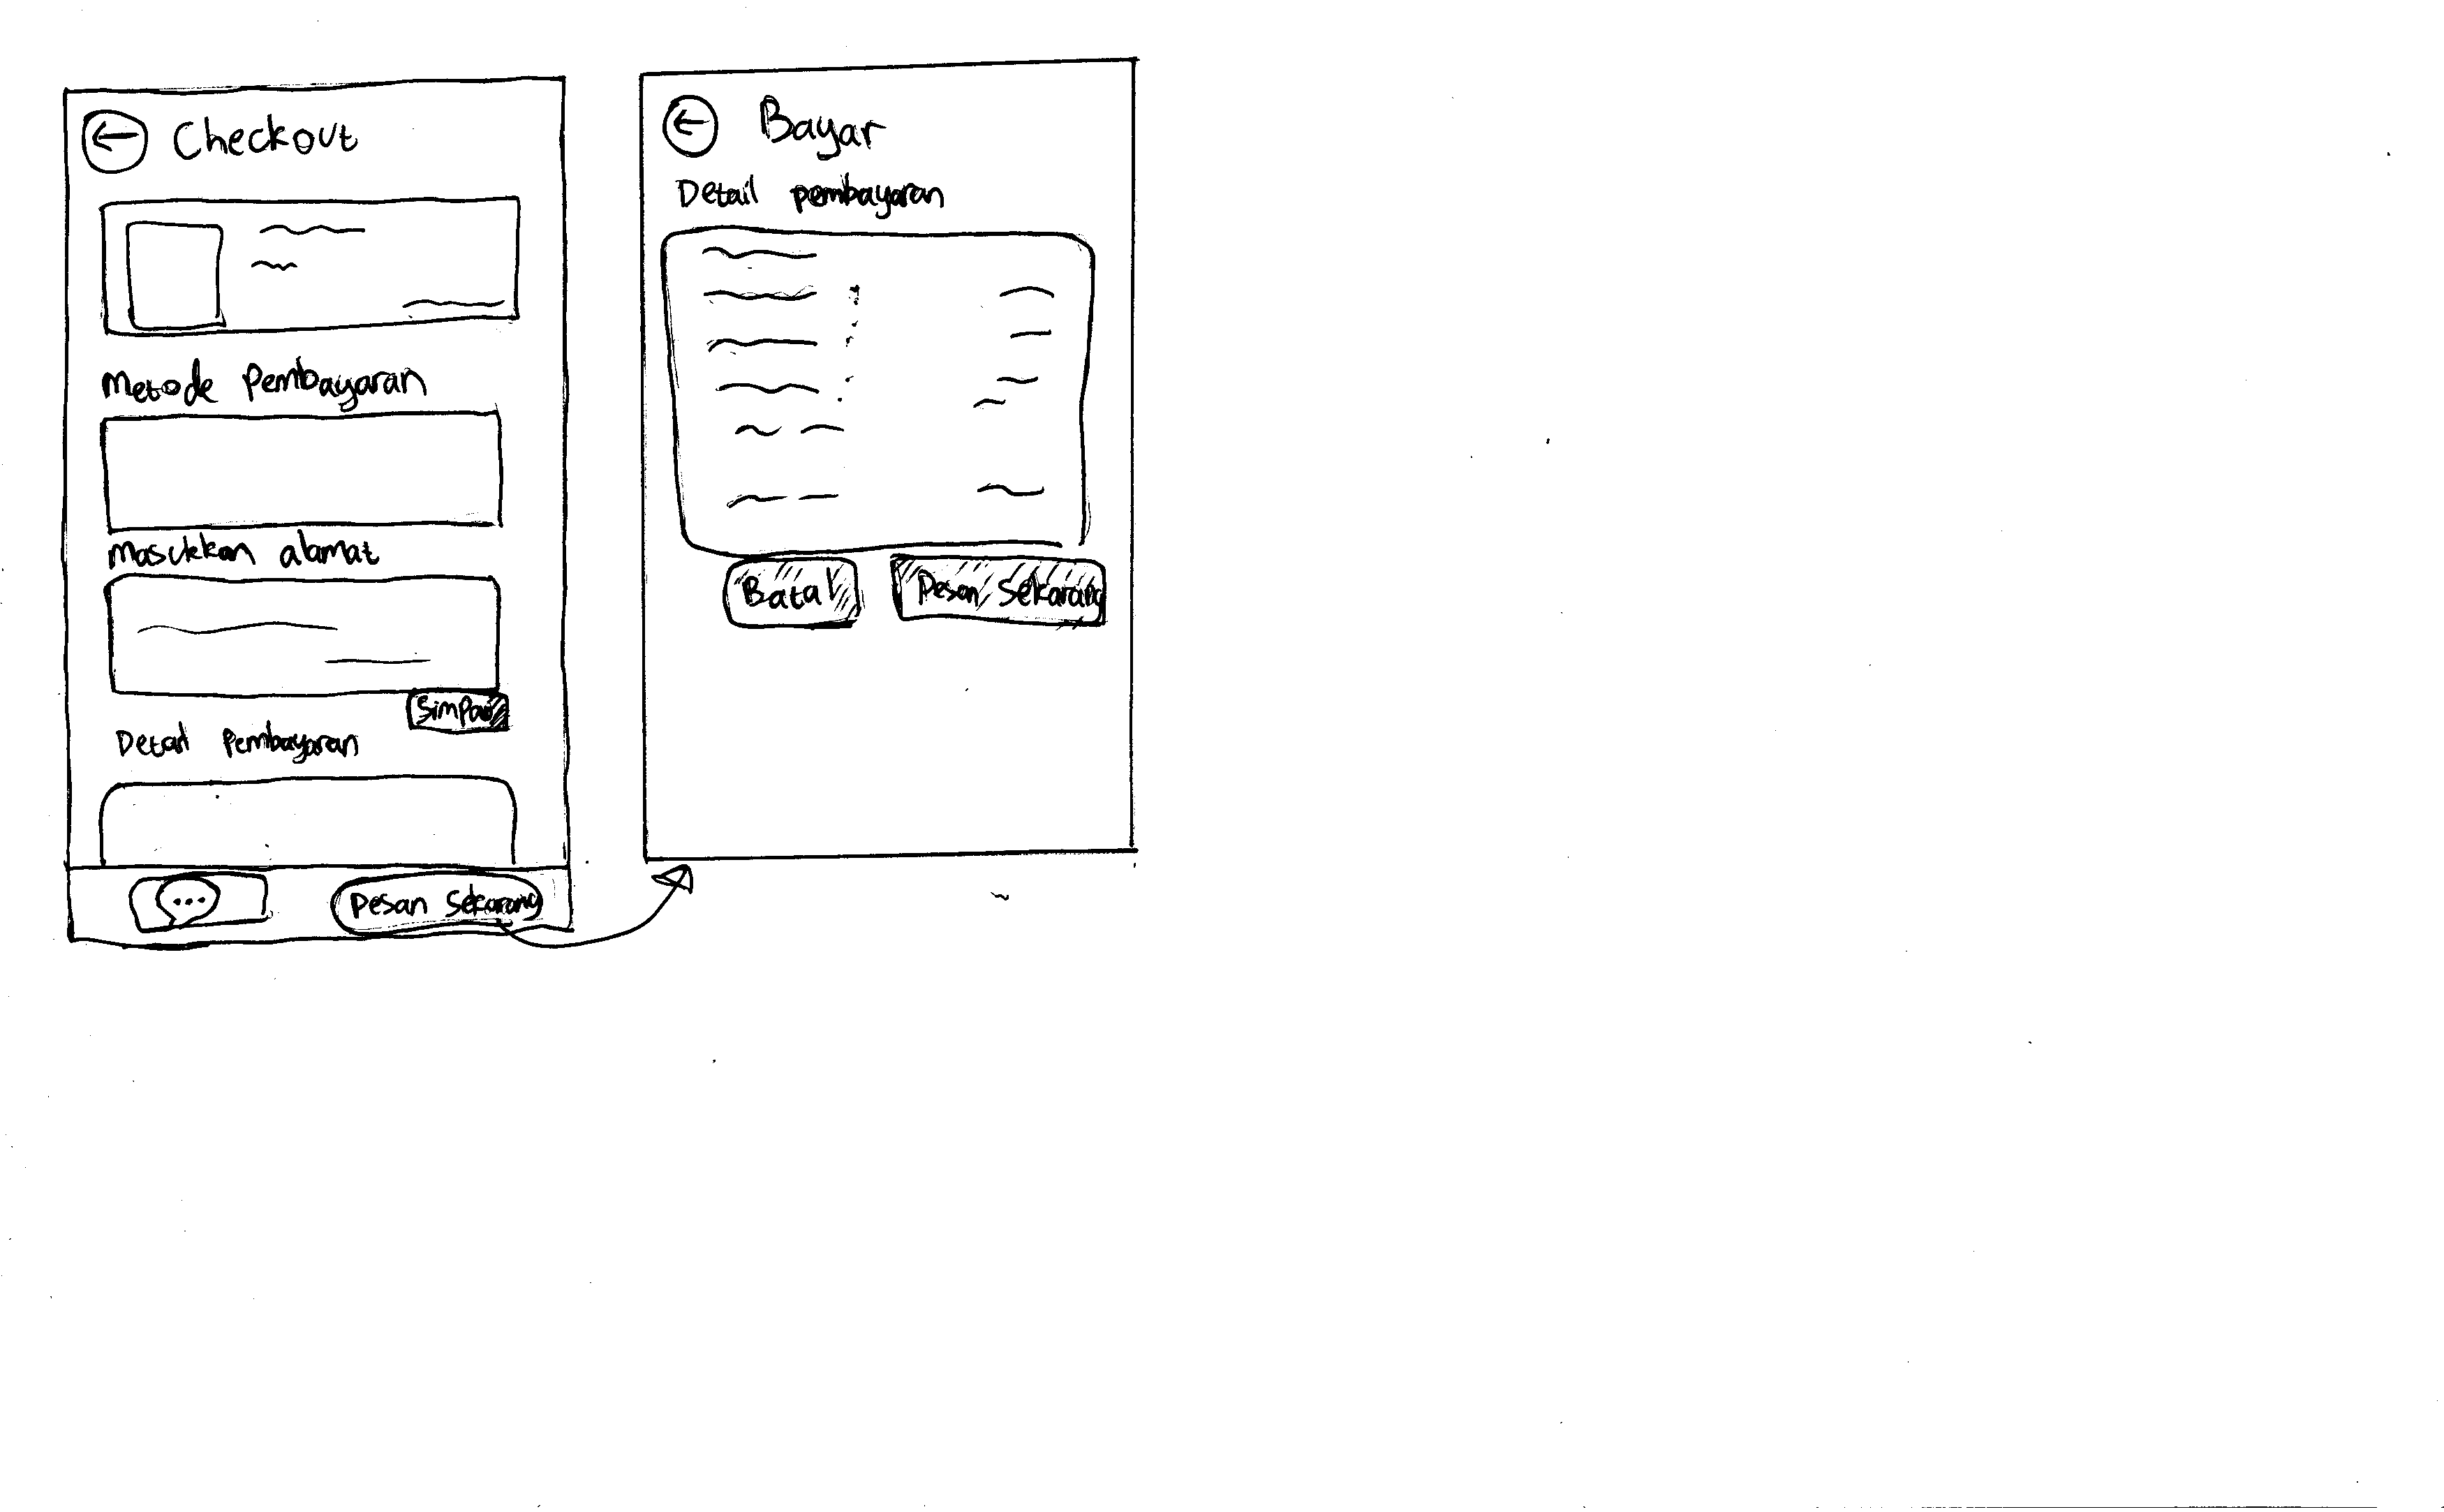 Checkout
Metode Pembayaran
Masukkan alamat
Simpan
Detail Pembayaran
Pesan Sekarang
Bayar
Detail pembayaran
Batal
Pesan Sekarang